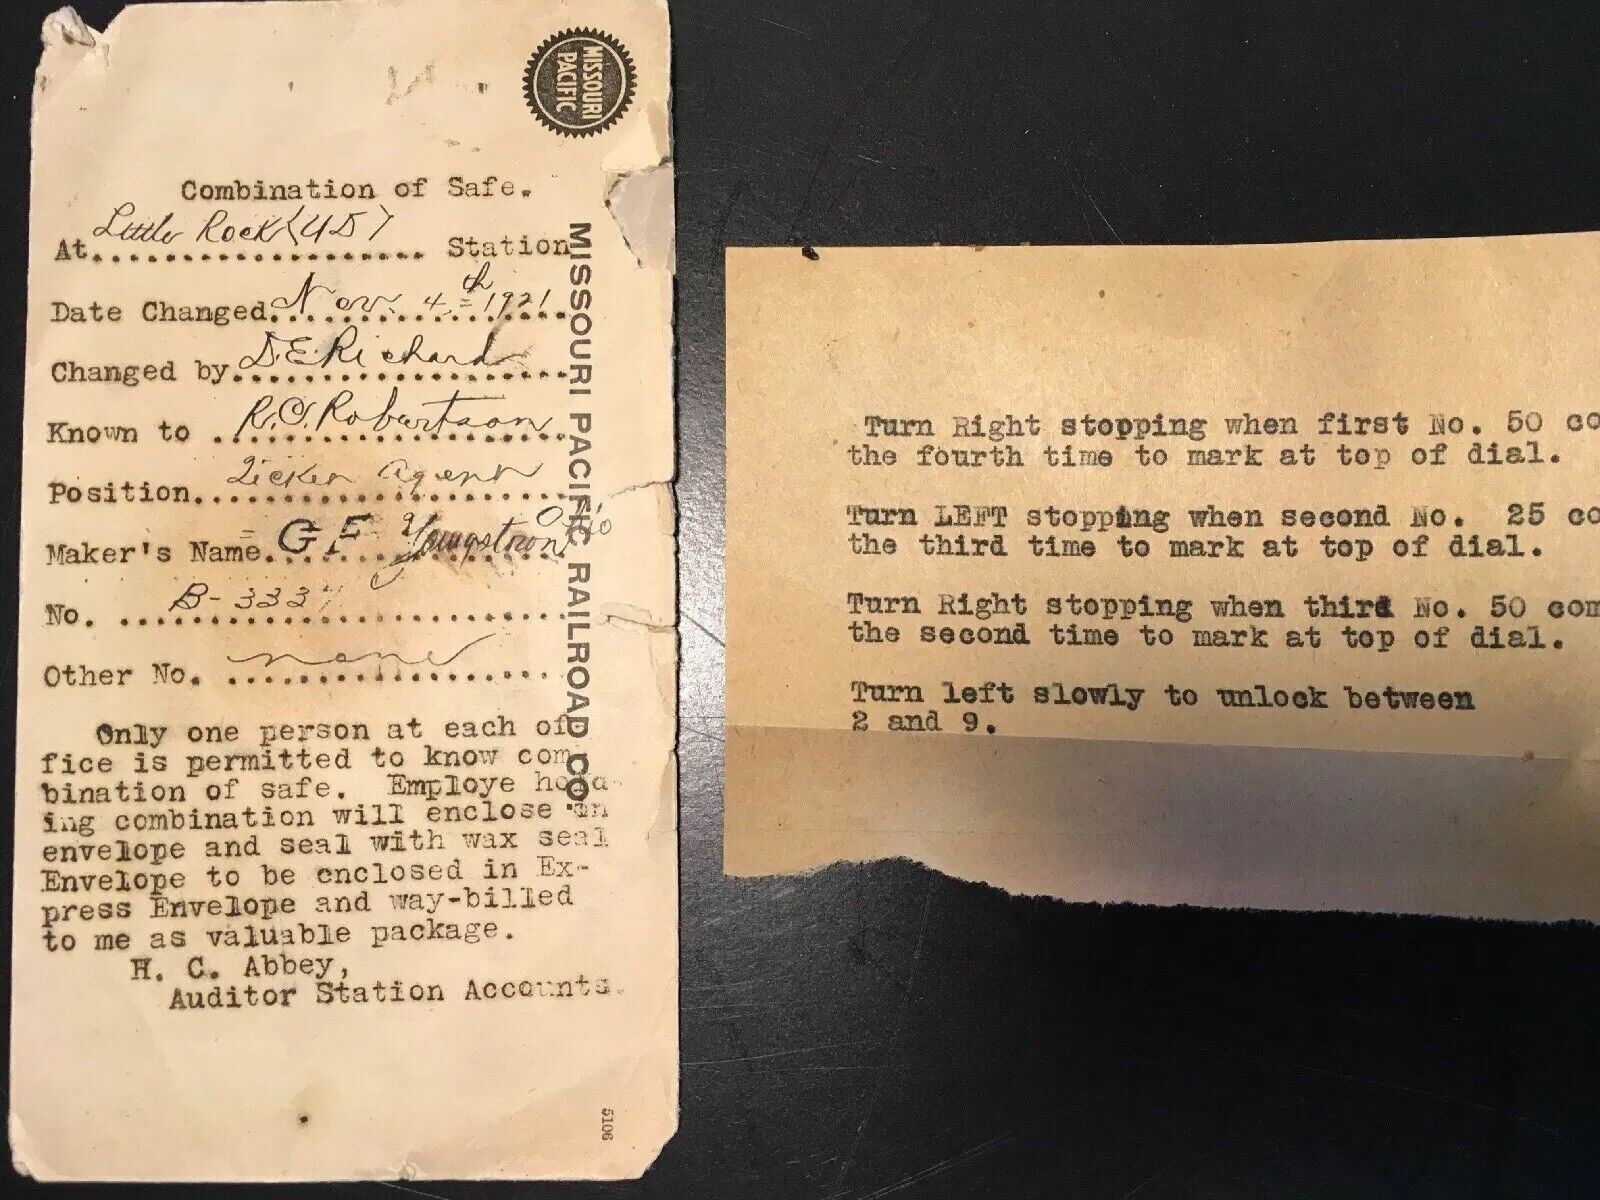 MISSOURI
PACIFIC
Combination of Safe.
At Little Rock (UD) Station
Date Changed Nov. 4th 1921
Changed by D.E. Richard
Known to R.C. Robertson
Position Ticket Agent
Maker's Name G F Youngstown Ohio
No. B-3337
Other No. none
Only one person at each of
fice is permitted to know com
bination of safe. Employe hold-
ing combination will enclose in
envelope and seal with wax seal
Envelope to be enclosed in Ex-
press Envelope and way-billed
to me as valuable package.
H. C. Abbey,
Auditor Station Accounts.
MISSOURI PACIFIC RAILROAD CO.
5106
Turn Right stopping when first No. 50 co
the fourth time to mark at top of dial.
Turn LEFT stopping when second No. 25 co
the third time to mark at top of dial.
Turn Right stopping when third No. 50 com
the second time to mark at top of dial.
Turn left slowly to unlock between
2 and 9.